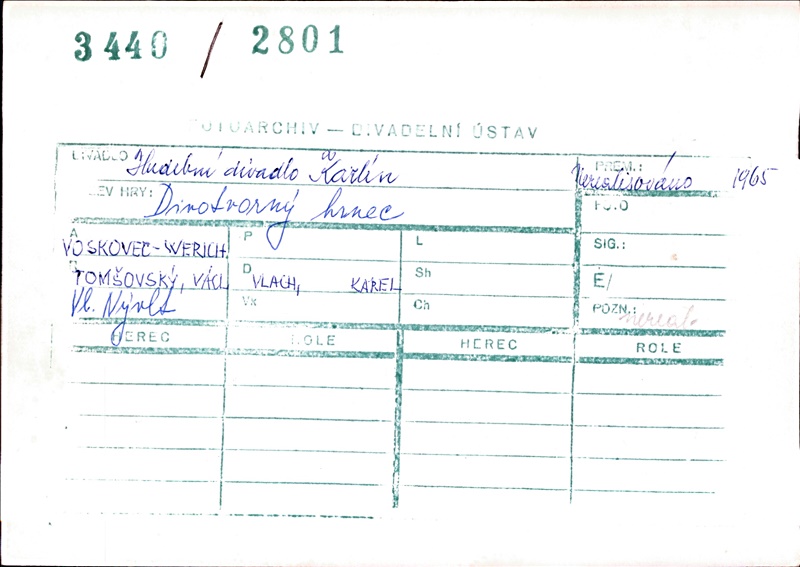 3440 / 2801
FOTOARCHIV — DIVADELNÍ ÚSTAV
DIVADLO Hudební divadlo v Karlín
PREM.: Nerealisováno 1965
EV HRY: Divotvorný hrnec
FOTO
A VOSKOVEC-WERICH
P
L
SIG.:
TOMŠOVSKÝ, VÁCL
D VLACH, KAREL
Sh
É/
Vl. Nývlt
Vx
Ch
POZN.: nereal.
HEREC ROLE HEREC ROLE